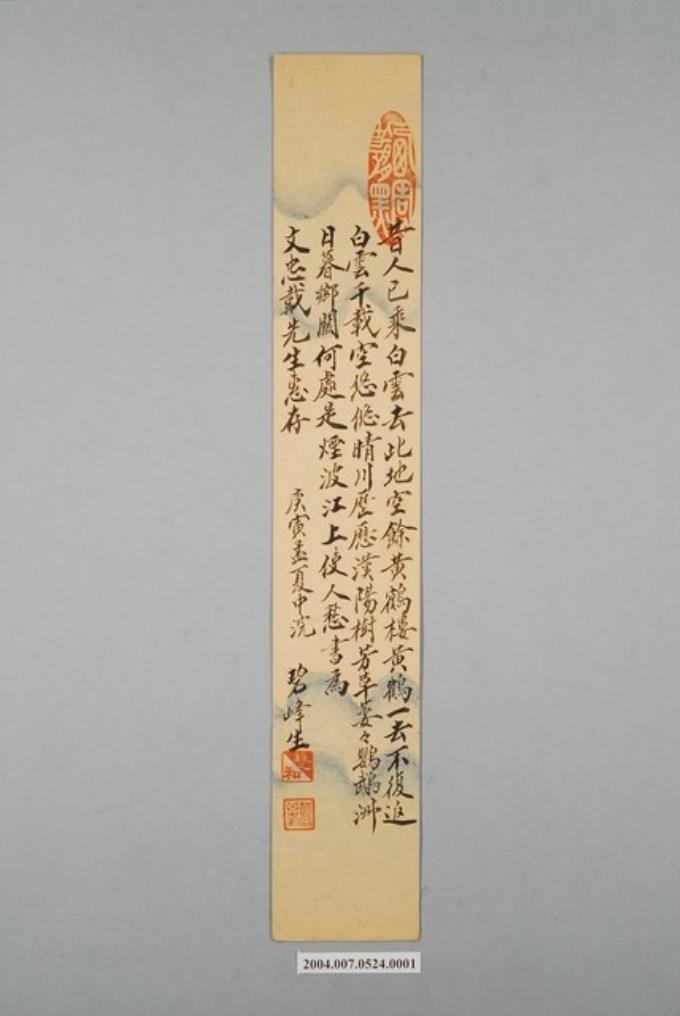 昔人已乘白雲去此地空餘黃鶴樓黃鶴一去不復返
白雲千載空悠悠晴川歷歷漢陽樹芳草萋々鸚鵡洲
日暮鄉關何處是煙波江上使人愁書爲
文忠戴先生惠存
庚寅孟夏中浣 碧峰生
2004.007.0524.0001